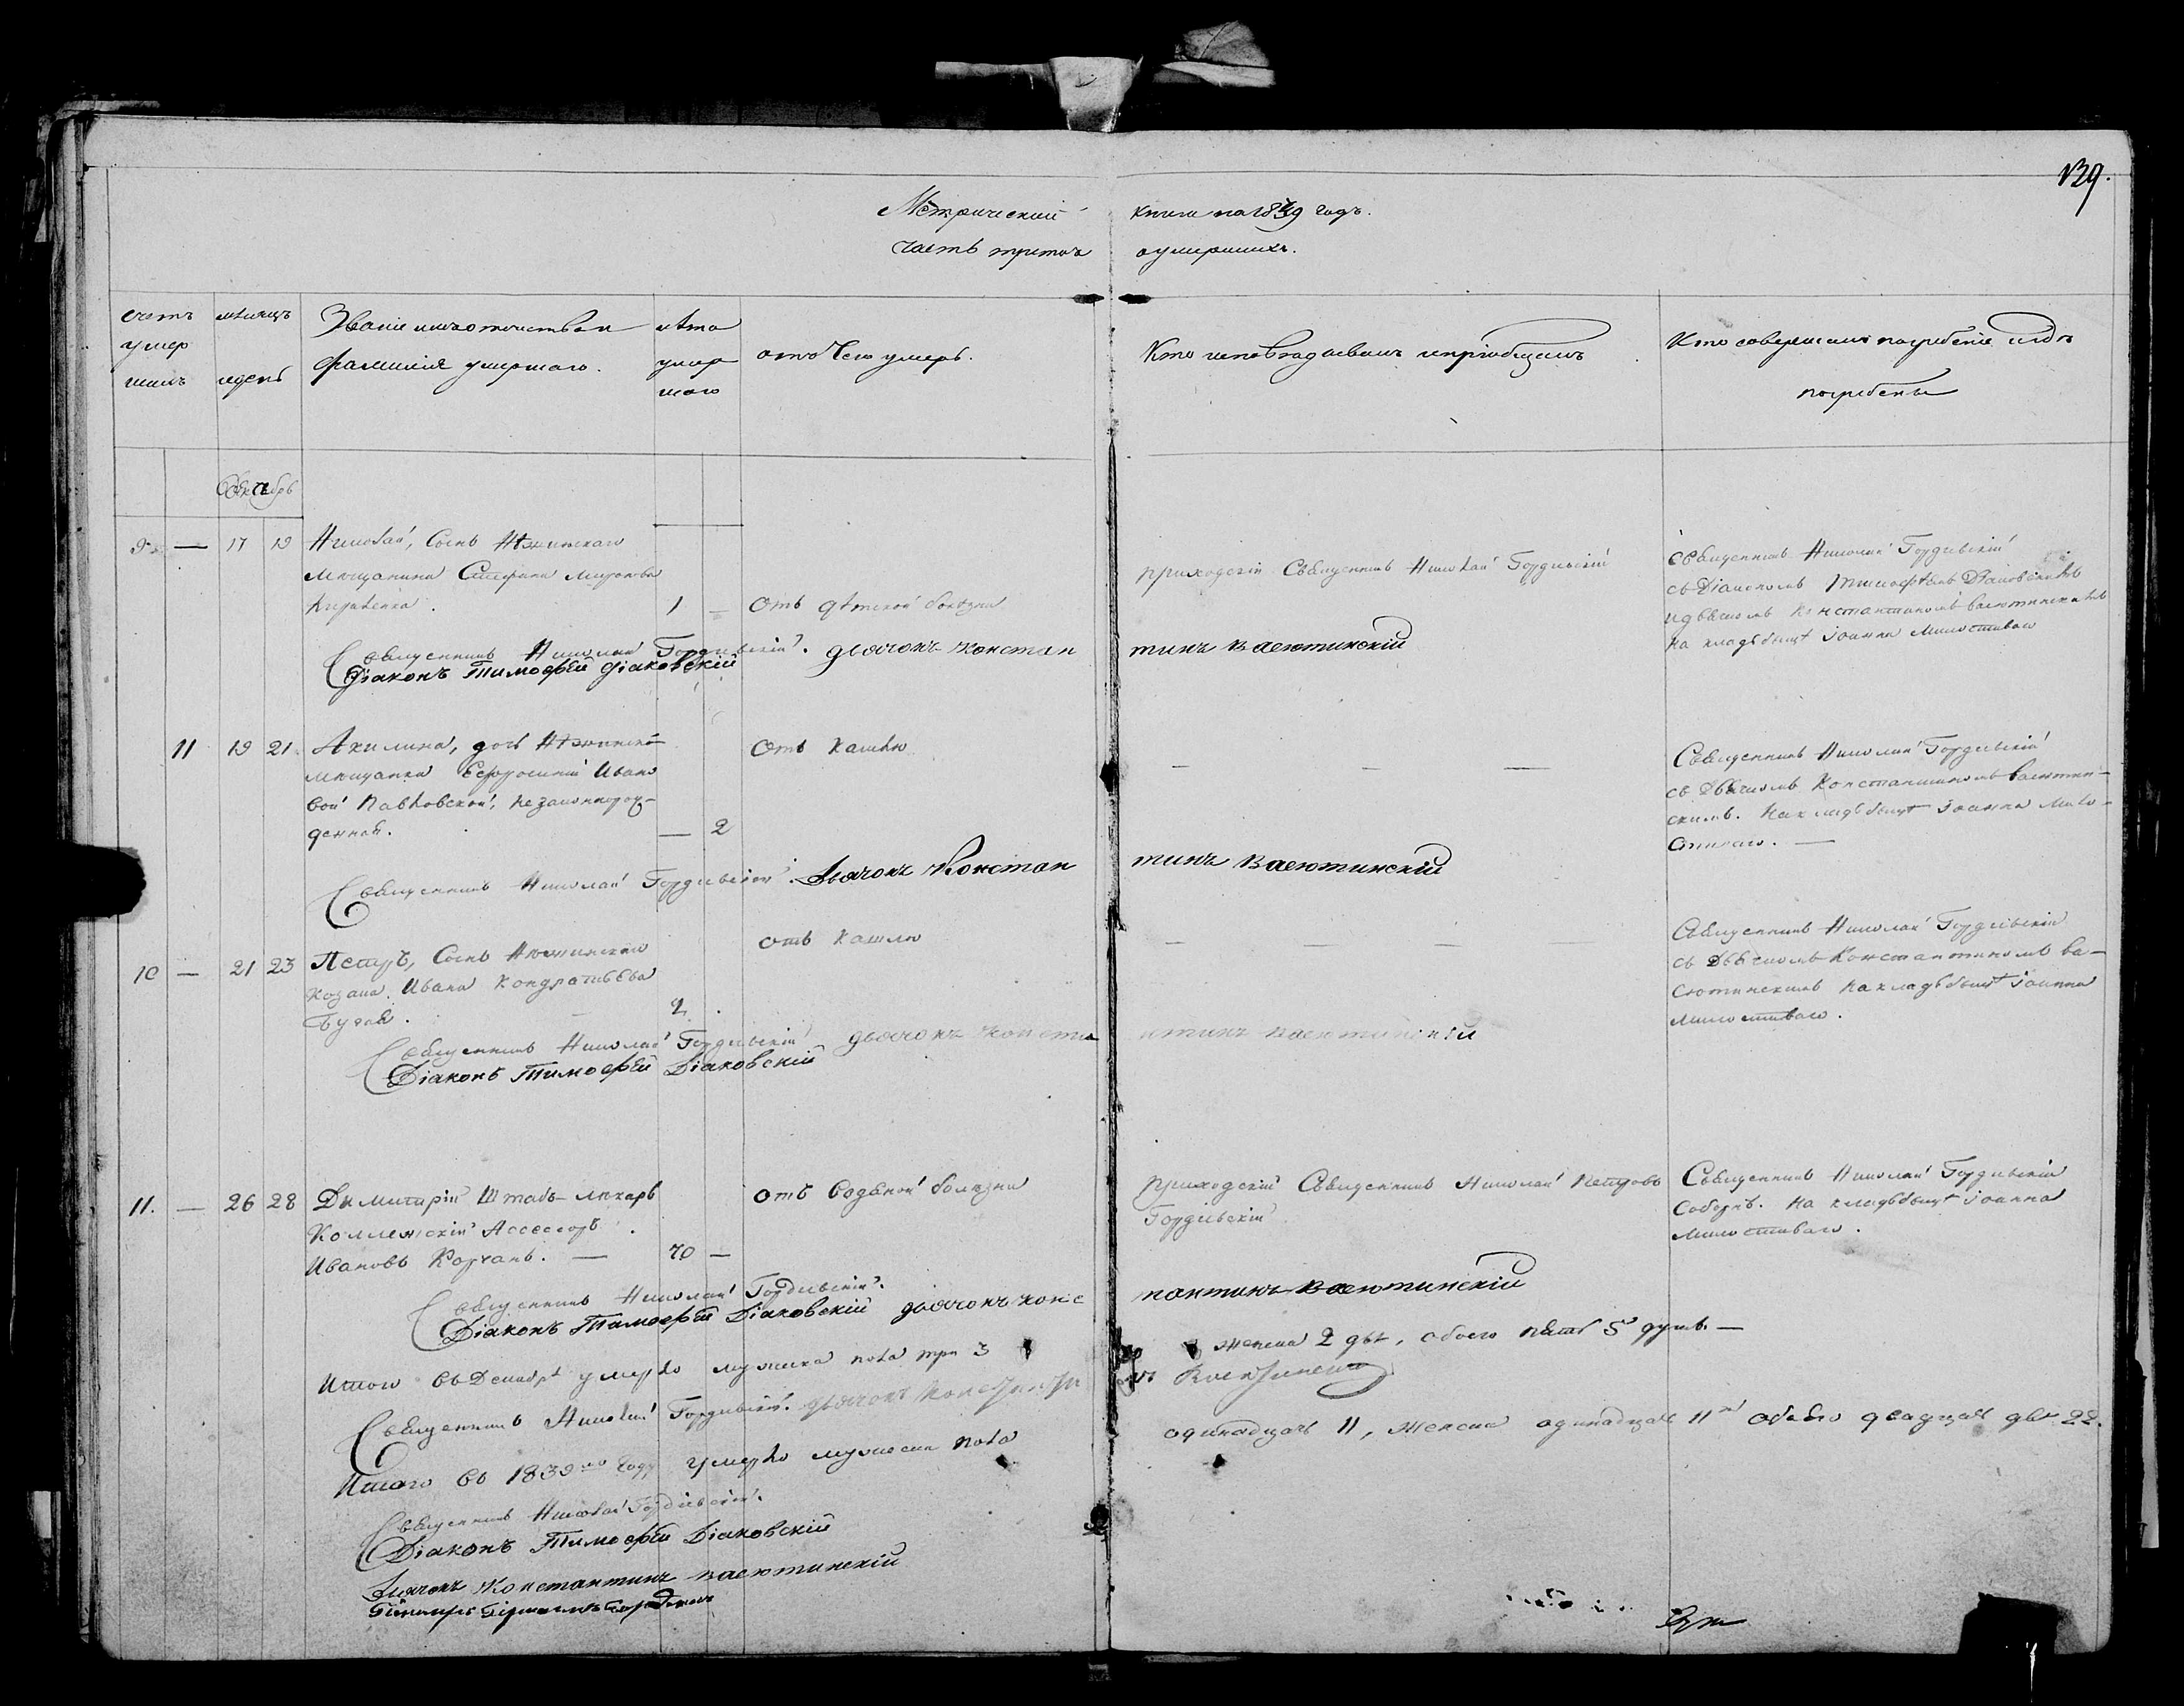 139.
Метрической книги на 1839 годъ.
часть третья о умершихъ.
счетъ умершихъ
мѣсяцъ и день
Званіе имя отчество и фамилія умершаго.
лѣта умершаго
отъ чего умеръ.
Кто исповѣдавалъ и пріобщалъ
Кто совершалъ погребеніе и гдѣ погребены
Декабрь
9. — 17 19 Николай, Сынъ Нѣжинскаго
мѣщанина Стефана Миронова
1 — Отъ дѣтской болезни
приходскій Священникъ Николай Гордіевскій
Священникъ Николай Гордіевскій
съ Діакономъ Тимофѣемъ Діаковскимъ
и дьячкомъ Константиномъ Васютинскимъ
на кладьбыщѣ Іоанна Милостиваго
Священникъ Николай Гордіевскій. дьячокъ Константинъ Васютинскій
Діаконъ Тимофѣй Діаковскій
11 19 21. Акилина, дочь Нѣжинской
мѣщанки Ефросиніи Ивано
вой Павловской, незаконнорож-
денной. — 2
Отъ кашлю
— — —
Священникъ Николай Гордіевскій
съ Дьячкомъ Константиномъ Васютин-
скимъ. На кладьбыщѣ Іоанна Мило-
стиваго. —
Священникъ Николай Гордіевскій. Дьячокъ Константинъ Васютинскій
10 — 21 23 Петръ, Сынъ Нѣжинскаго
козака Ивана Кондратьева
Бугай. — 2.
отъ кашлю
— — — —
Священникъ Николай Гордіевскій
съ Дьячкомъ Константиномъ Ва-
сютинскимъ на кладьбыщѣ Іоанна
милостиваго.
Священникъ Николай Гордіевскій дьячокъ Константинъ Васютинскій
Діаконъ Тимофѣй Діаковскій
11. — 26 28 Димитрій Штабъ-лекарь
Коллежскій Ассессоръ
Ивановъ Корчанъ. — 70 —
отъ водяной болезни
приходскій Священникъ Николай Петровъ
Гордіевскій
Священникъ Николай Гордіевскій
Соборнѣ. На кладьбыщѣ Іоанна
милостиваго.
Священникъ Николай Гордіевскій.
Діаконъ Тимофѣй Діаковскій дьячокъ Константинъ Васютинскій
Итого въ Декабрѣ умерло мужеска пола три 3 женска 2 двѣ, обоего пять 5 душъ. —
Священникъ Николай Гордіевскій. дьячокъ Константинъ Васютинскій
Итого въ 1839мъ году умерло мужеска пола одинадцать 11, женска одинадцать 11 обоего двадцать двѣ 22.
Священникъ Николай Гордіевскій.
Діаконъ Тимофѣй Діаковскій
Дьячокъ Константинъ Васютинскій